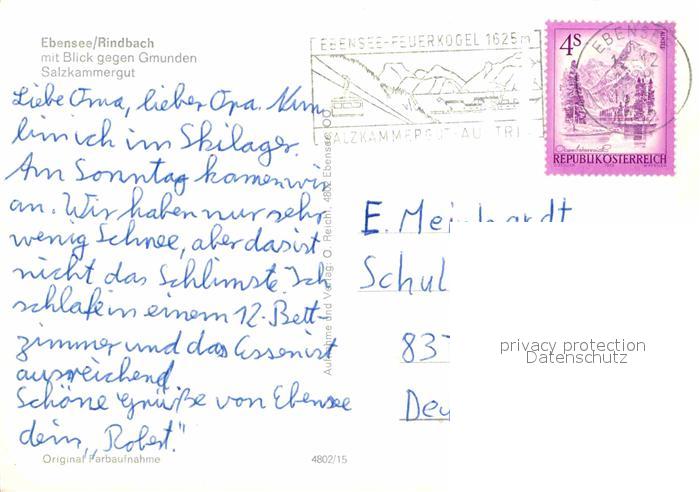 Ebensee/Rindbach
mit Blick gegen Gmunden
Salzkammergut
Liebe Oma, lieber Opa. Nun
bin ich im Skilager.
Am Sonntag kamen wir
an. Wir haben nur sehr
wenig Schnee, aber das ist
nicht das Schlimste. Ich
schlafe in einem 12. Bett-
zimmer und das Essen ist
ausreichend.
Schöne Grüße von Ebensee
dein „Robert."
Original Farbaufnahme
4802/15
Aufnahme und Verlag: O. Reichl, 4802 Ebensee, OÖ
EBENSEE-FEUERKOGEL 1625m
SALZKAMMERGUT-AU TRI
EBENSEE
4S
REPUBLIK ÖSTERREICH
E. Meinhardt
Schul
83
privacy protection
Datenschutz